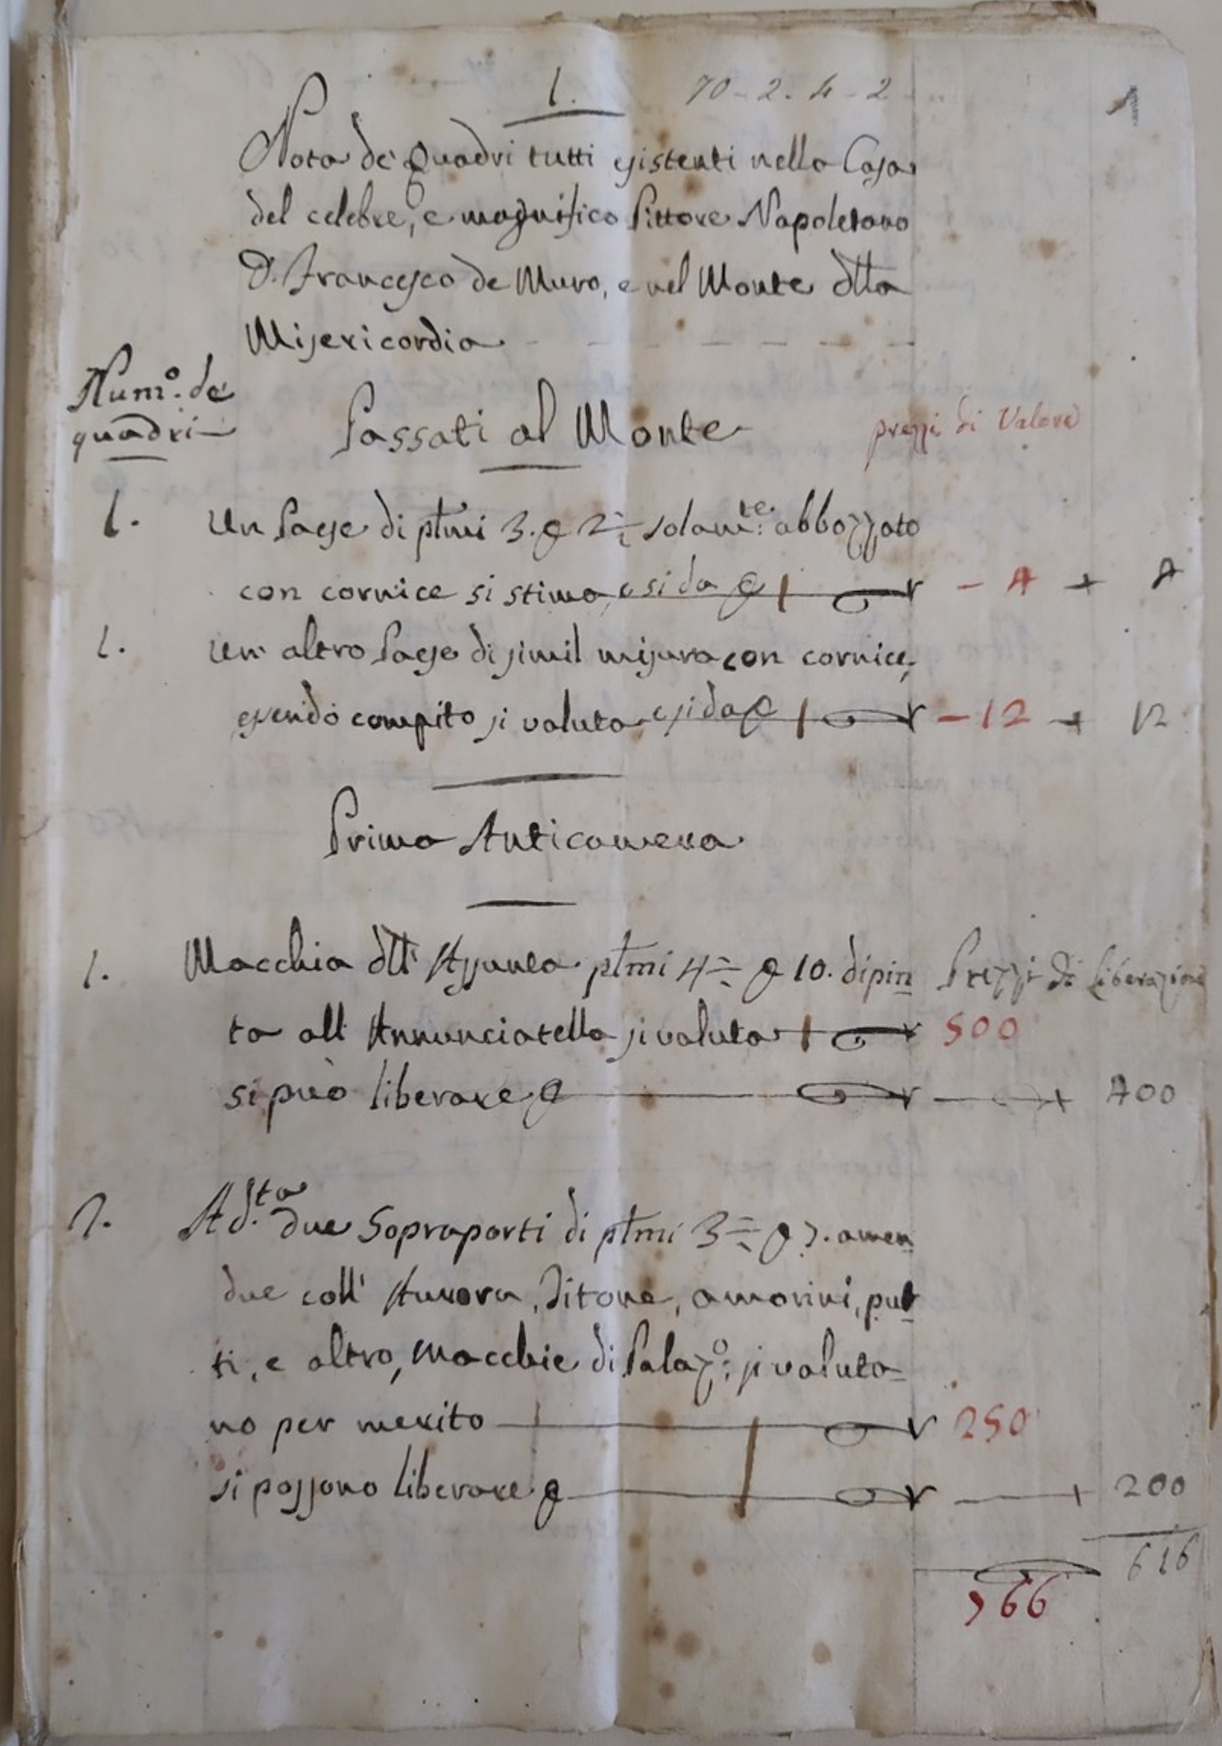 1. 70-2.4-2 1
Nota de' Quadri tutti esistenti nella Casa
del celebre, e magnifico Pittore Napoletano
D. Francesco de Muro, e nel Monte dtta
Misericordia
Num.º de'
quadri
Passati al Monte
prezzi di Valore
1. Un Paese di plmi 3. e 2 solam.te: abbozzato
con cornice si stima, e si da p - 4 + 4
1. Un' altro Paese di simil misura con cornice,
essendo compito si valuta e si da p - 12 + 12
Prima Anticamera
1. Macchia dll' Assunta plmi 4 e 10. dipin
Prezzi di liberazione
ta all' Annunciatella si valuta 500
si può liberare p 400
2. Ad.ta due Sopraporti di plmi 3 e 7. amen
due coll' Aurora, Titone, amorini, put
ti, e altro, macchie di Palaz.º: si valuta=
no per merito 250
si possono liberare p 200
616
766